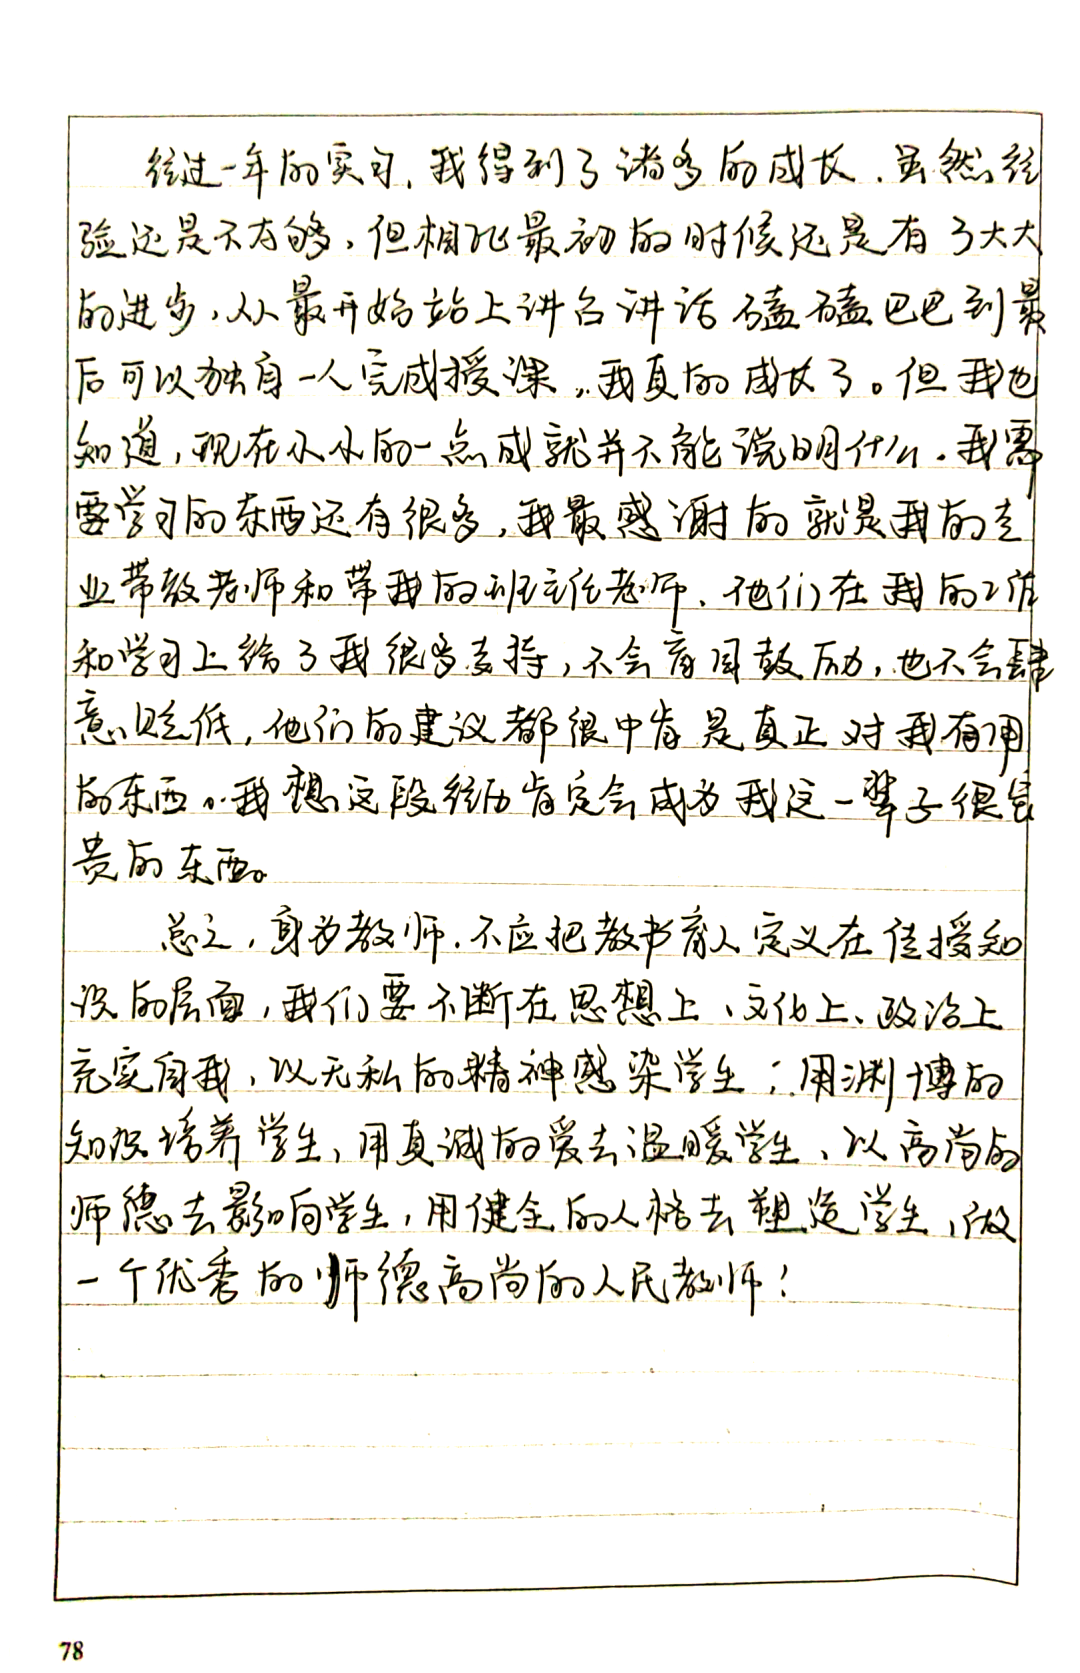 经过一年的实习，我得到了诸多的成长，虽然经
验还是不太够，但相比最初的时候还是有了大大
的进步，从最开始站上讲台讲话磕磕巴巴到最
后可以独自一人完成授课，我真的成长了。但我也
知道，现在小小的一点成就并不能说明什么。我需
要学习的东西还有很多，我最感谢的就是我的专
业带教老师和带我的班主任老师，他们在我的工作
和学习上给了我很多支持，不会盲目鼓励，也不会肆
意贬低，他们的建议都很中肯是真正对我有用
的东西。我想这段经历肯定会成为我这一辈子很宝
贵的东西。
总之，身为教师，不应把教书育人定义在传授知
识的层面，我们要不断在思想上、文化上、政治上
充实自我，以无私的精神感染学生；用渊博的
知识培养学生，用真诚的爱去温暖学生，以高尚的
师德去影响学生，用健全的人格去塑造学生，做
一个优秀的师德高尚的人民教师！
78